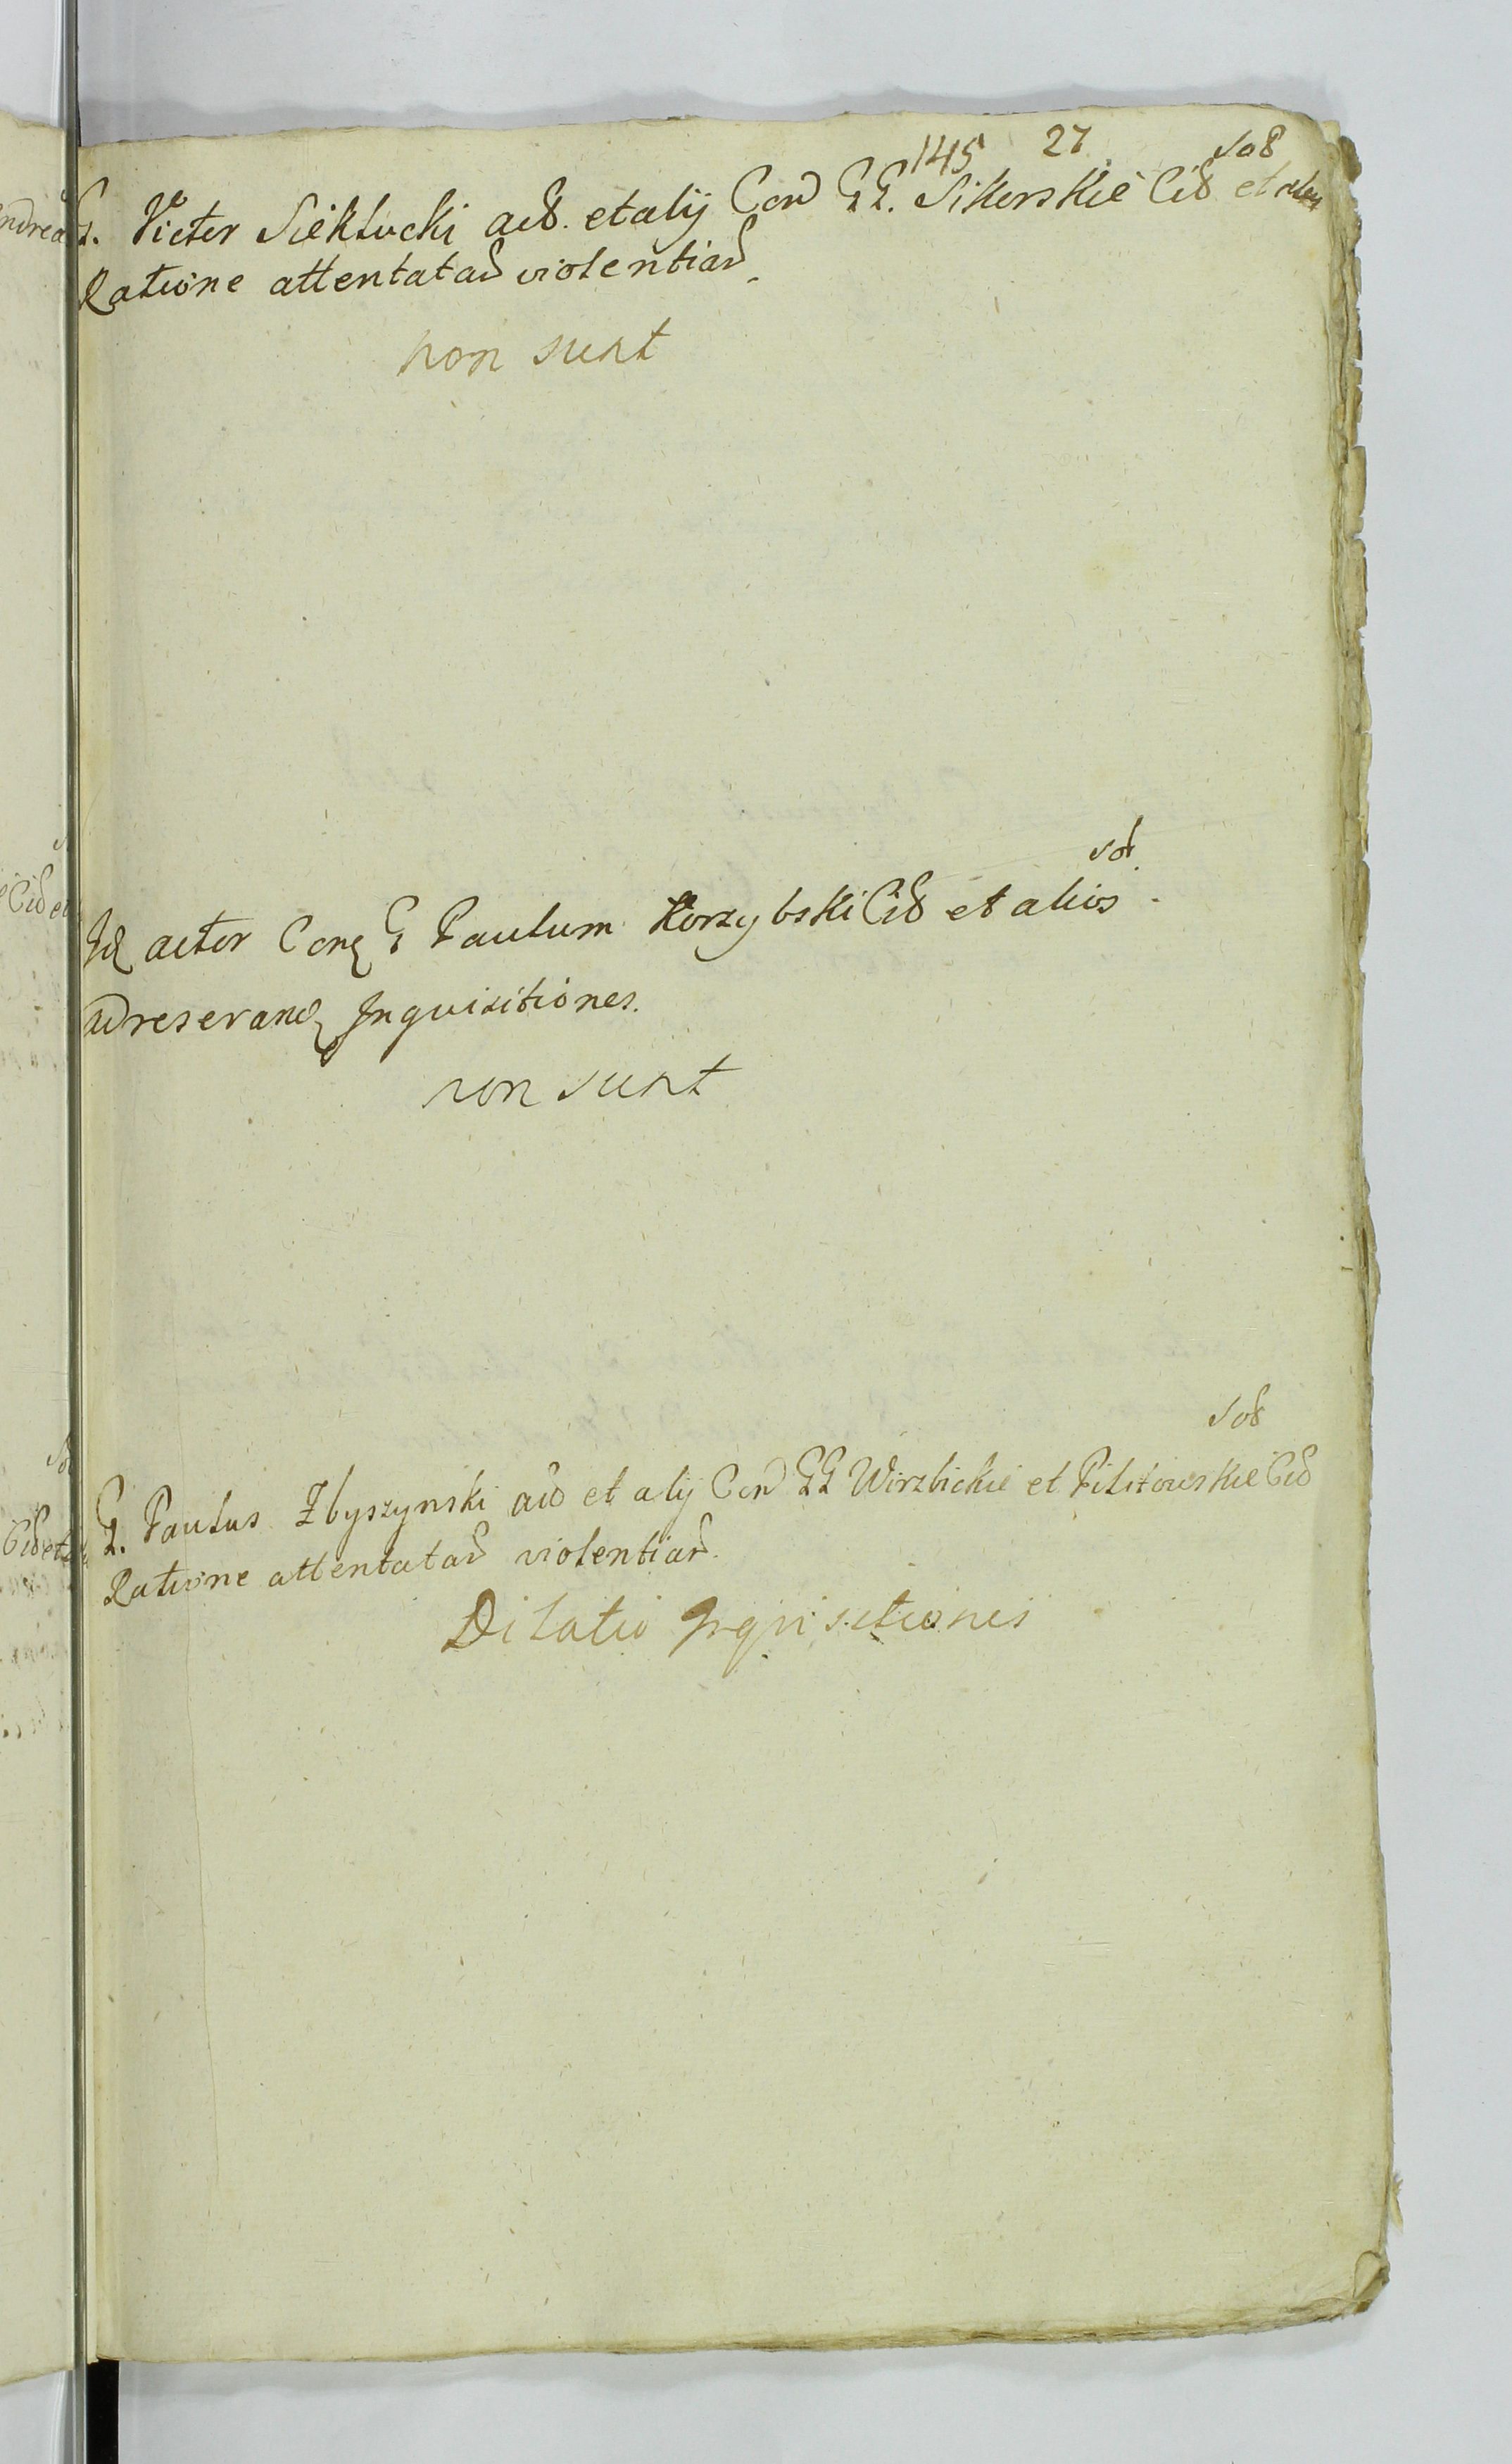 145 27 sol
G. Victor Siekłucki act. et alij Con GG. Sikorskie Cit et alios
Ratione attentatar violentiar
non sunt
sol.
Id actor Con G Paulum Korzybski Cit et alios
ad reserand Inquisitiones.
non sunt
sol
G. Paulus Zbyszynski act et alij Con GG Wirzbickie et Filitowskie Cit
Ratione attentatar violentiar.
Dilatio Inquisitionis